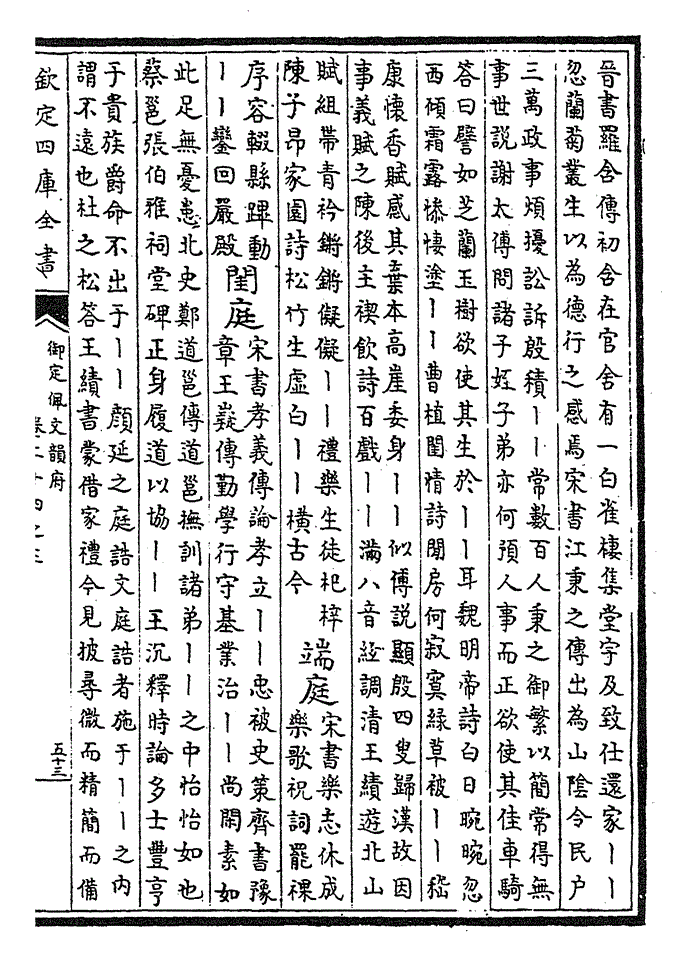 晉書羅含傳初含在官舍有一白雀棲集堂宇及致仕還家丨丨
忽蘭菊叢生以為德行之感焉宋書江秉之傳出為山陰令民户
三萬政事煩擾訟訴殷積丨丨常數百人秉之御繁以簡常得無
事世說謝太傅問諸子姪子弟亦何預人事而正欲使其佳車騎
答曰譬如芝蘭玉樹欲使其生於丨丨耳魏明帝詩白日晼晼忽
西傾霜露慘悽塗丨丨曹植閨情詩閒房何寂寞綠草被丨丨嵇
康懷香賦感其棄本高崖委身丨丨似傅說顯殷四叟歸漢故因
事義賦之陳後主禊飲詩百戲丨丨滿八音絃調清王績遊北山
賦組帶青衿鏘鏘儗儗丨丨禮樂生徒杞梓
陳子昂家園詩松竹生虛白丨丨橫古今
端庭
宋書樂志休成
樂歌祝詞罷祼
序容輟縣蹕動
丨丨鑾回嚴殿
閨庭
宋書孝義傳論孝立丨丨忠被史策齊書豫
章王嶷傳勤學行守基業治丨丨尚閑素如
此足無憂患北史鄭道邕傳道邕撫訓諸弟丨丨之中怡怡如也
蔡邕張伯雅祠堂碑正身履道以協丨丨王沉釋時論多士豐亨
于貴族爵命不出于丨丨顏延之庭誥文庭誥者施于丨丨之内
謂不遠也杜之松答王績書蒙借家禮今見披尋微而精簡而備
欽定四庫全書
御定佩文韻府
卷二十四之三
五十三